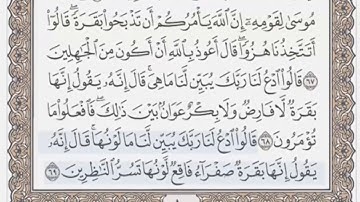 مُوسَىٰ لِقَوْمِهِۦٓ إِنَّ ٱللَّهَ يَأْمُرُكُمْ أَن تَذْبَحُوا۟ بَقَرَةً ۖ قَالُوٓا۟
أَتَتَّخِذُنَا هُزُوًا ۖ قَالَ أَعُوذُ بِٱللَّهِ أَنْ أَكُونَ مِنَ ٱلْجَٰهِلِينَ
٦٧ قَالُوا۟ ٱدْعُ لَنَا رَبَّكَ يُبَيِّن لَّنَا مَا هِىَ ۚ قَالَ إِنَّهُۥ يَقُولُ إِنَّهَا
بَقَرَةٌ لَّا فَارِضٌ وَلَا بِكْرٌ عَوَانٌۢ بَيْنَ ذَٰلِكَ ۖ فَٱفْعَلُوا۟ مَا
تُؤْمَرُونَ ٦٨ قَالُوا۟ ٱدْعُ لَنَا رَبَّكَ يُبَيِّن لَّنَا مَا لَوْنُهَا ۚ قَالَ إِنَّهُۥ
يَقُولُ إِنَّهَا بَقَرَةٌ صَفْرَآءُ فَاقِعٌ لَّوْنُهَا تَسُرُّ ٱلنَّٰظِرِينَ ٦٩